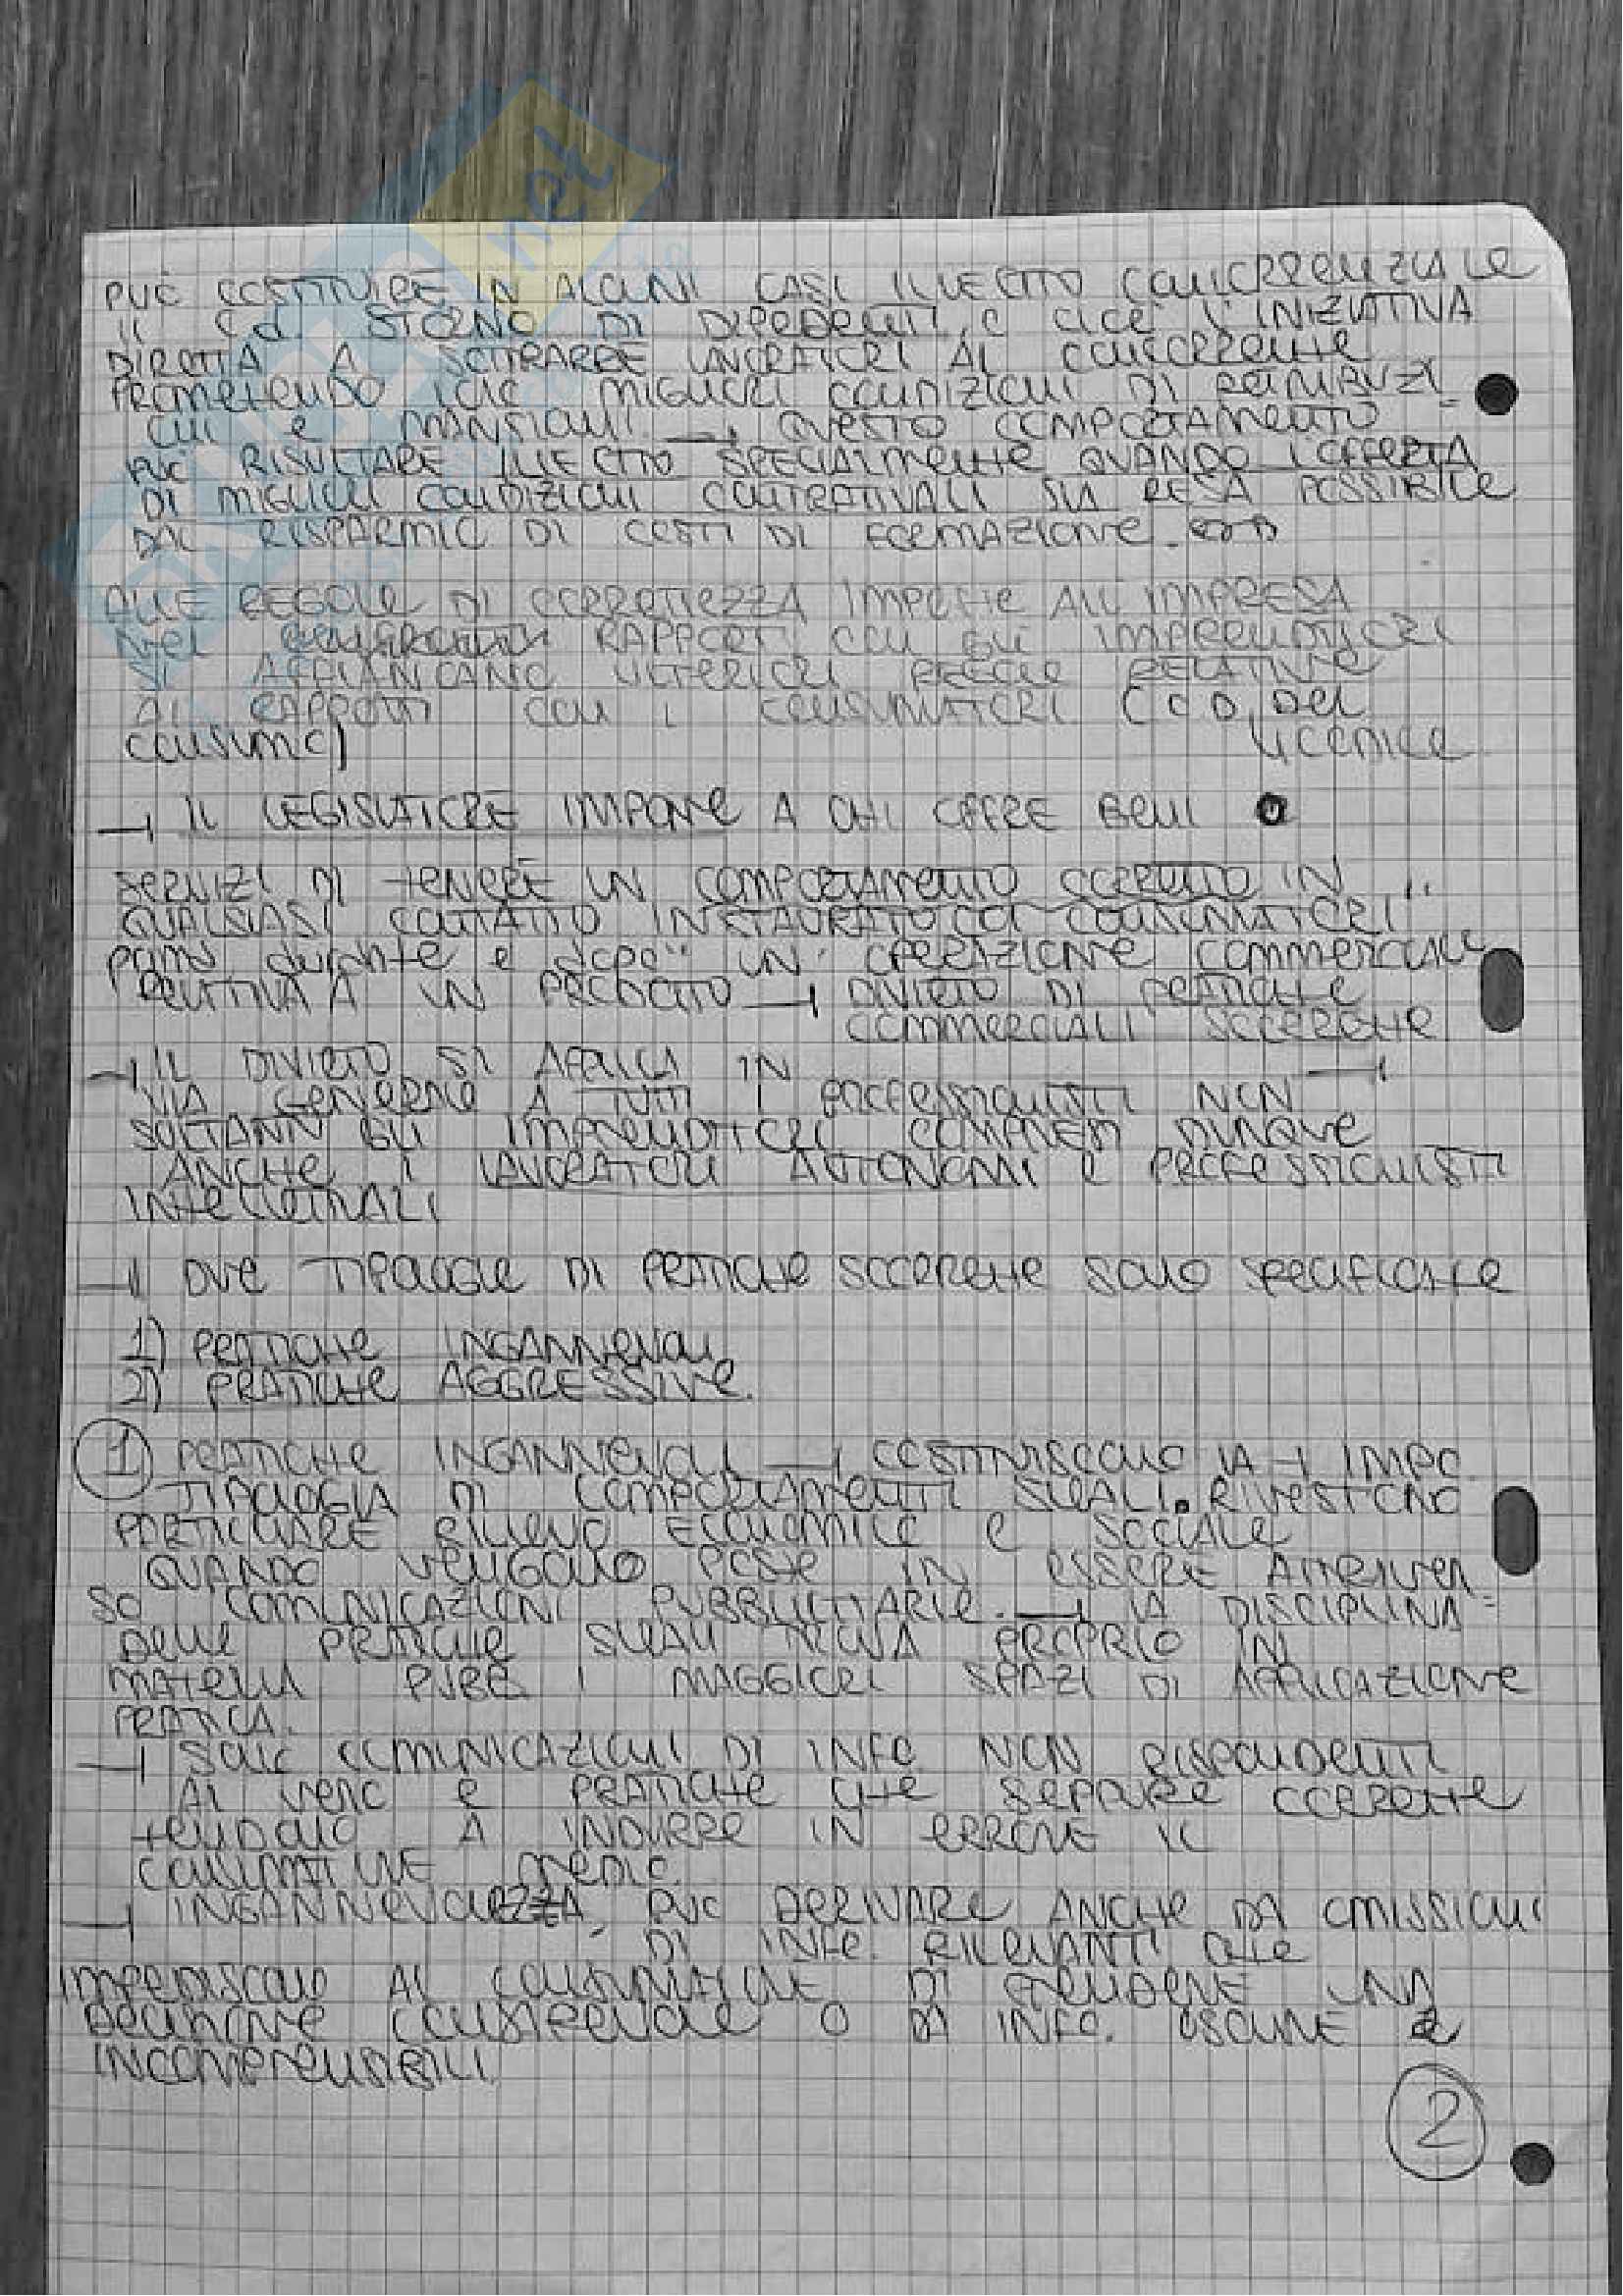 PUÒ COSTITUIRE IN ALCUNI CASI ILLECITO CONCORRENZIALE
IL C.d STORNO DI DIPEDENTI, E CIOÈ L'INIZIATIVA
DIRETTA A SOTTRARRE LAVORATORI AL CONCORRENTE
PROMETTENDO LORO MIGLIORI CONDIZIONI DI RETRIBUZI=
ONI E MANSIONI → QUESTO COMPORTAMENTO
PUÒ RISULTARE ILLECITO SPECIALMENTE QUANDO L'OFFERTA
DI MIGLIORI CONDIZIONI CONTRATTUALI SIA RESA POSSIBILE
DAL RISPARMIO DI COSTI DI FORMAZIONE.
ALLE REGOLE DI CORRETTEZZA IMPOSTE ALL'IMPRESA
NEI RAPPORTI CON GLI IMPRENDITORI
SI AFFIANCANO ULTERIORI REGOLE RELATIVE
AI RAPPORTI CON I CONSUMATORI (COD. DEL
CONSUMO)
→ IL LEGISLATORE IMPONE A CHI OFFRE BENI O
SERVIZI DI TENERE UN COMPORTAMENTO CORRETTO IN
QUALSIASI CONTATTO INSTAURATO COI CONSUMATORI "
prima durante e dopo" UN' OPERAZIONE COMMERCIALE
RELATIVA A UN PRODOTTO → DIVIETO DI PRATICHE
COMMERCIALI SCORRETTE
→ IL DIVIETO SI APPLICA IN →
VIA GENERALE A TUTTI I PROFESSIONISTI NON
SOLTANTO GLI IMPRENDITORI COMPRESI DUNQUE
ANCHE I LAVORATORI AUTONOMI E PROFESSIONISTI
INTELLETTUALI
→ DUE TIPOLOGIE DI PRATICHE SCORRETTE SONO SPECIFICATE
1) PRATICHE INGANNEVOLI
2) PRATICHE AGGRESSIVE.
1) PRATICHE INGANNEVOLI → COSTITUISCONO LA + IMPO.
TIPOLOGIA DI COMPORTAMENTI SLEALI. RIVESTONO
PARTICOLARE RILIEVO ECONOMICO E SOCIALE
QUANDO VENGONO POSTE IN ESSERE ATTRAVER=
SO COMUNICAZIONI PUBBLICITARIE. → LA DISCIPLINA
DELLE PRATICHE SLEALI TROVA PROPRIO IN
MATERIA PUBB. I MAGGIORI SPAZI DI APPLICAZIONE
PRATICA.
→ SOLO COMUNICAZIONI DI INFO NON RISPONDENTI
AL VERO E PRATICHE CHE SEPPURE CORRETTE
TENDONO A INDURRE IN ERRORE IL
CONSUMATORE MEDIO.
→ INGANNEVOLEZZA PUÒ DERIVARE ANCHE DA OMISSIONI
DI INFO. RILEVANTI CHE
IMPEDISCONO AL CONSUMATORE DI PRENDERE UNA
DECISIONE CONSAPEVOLE O DA INFO. OSCURE E
INCOMPRENSIBILI
2